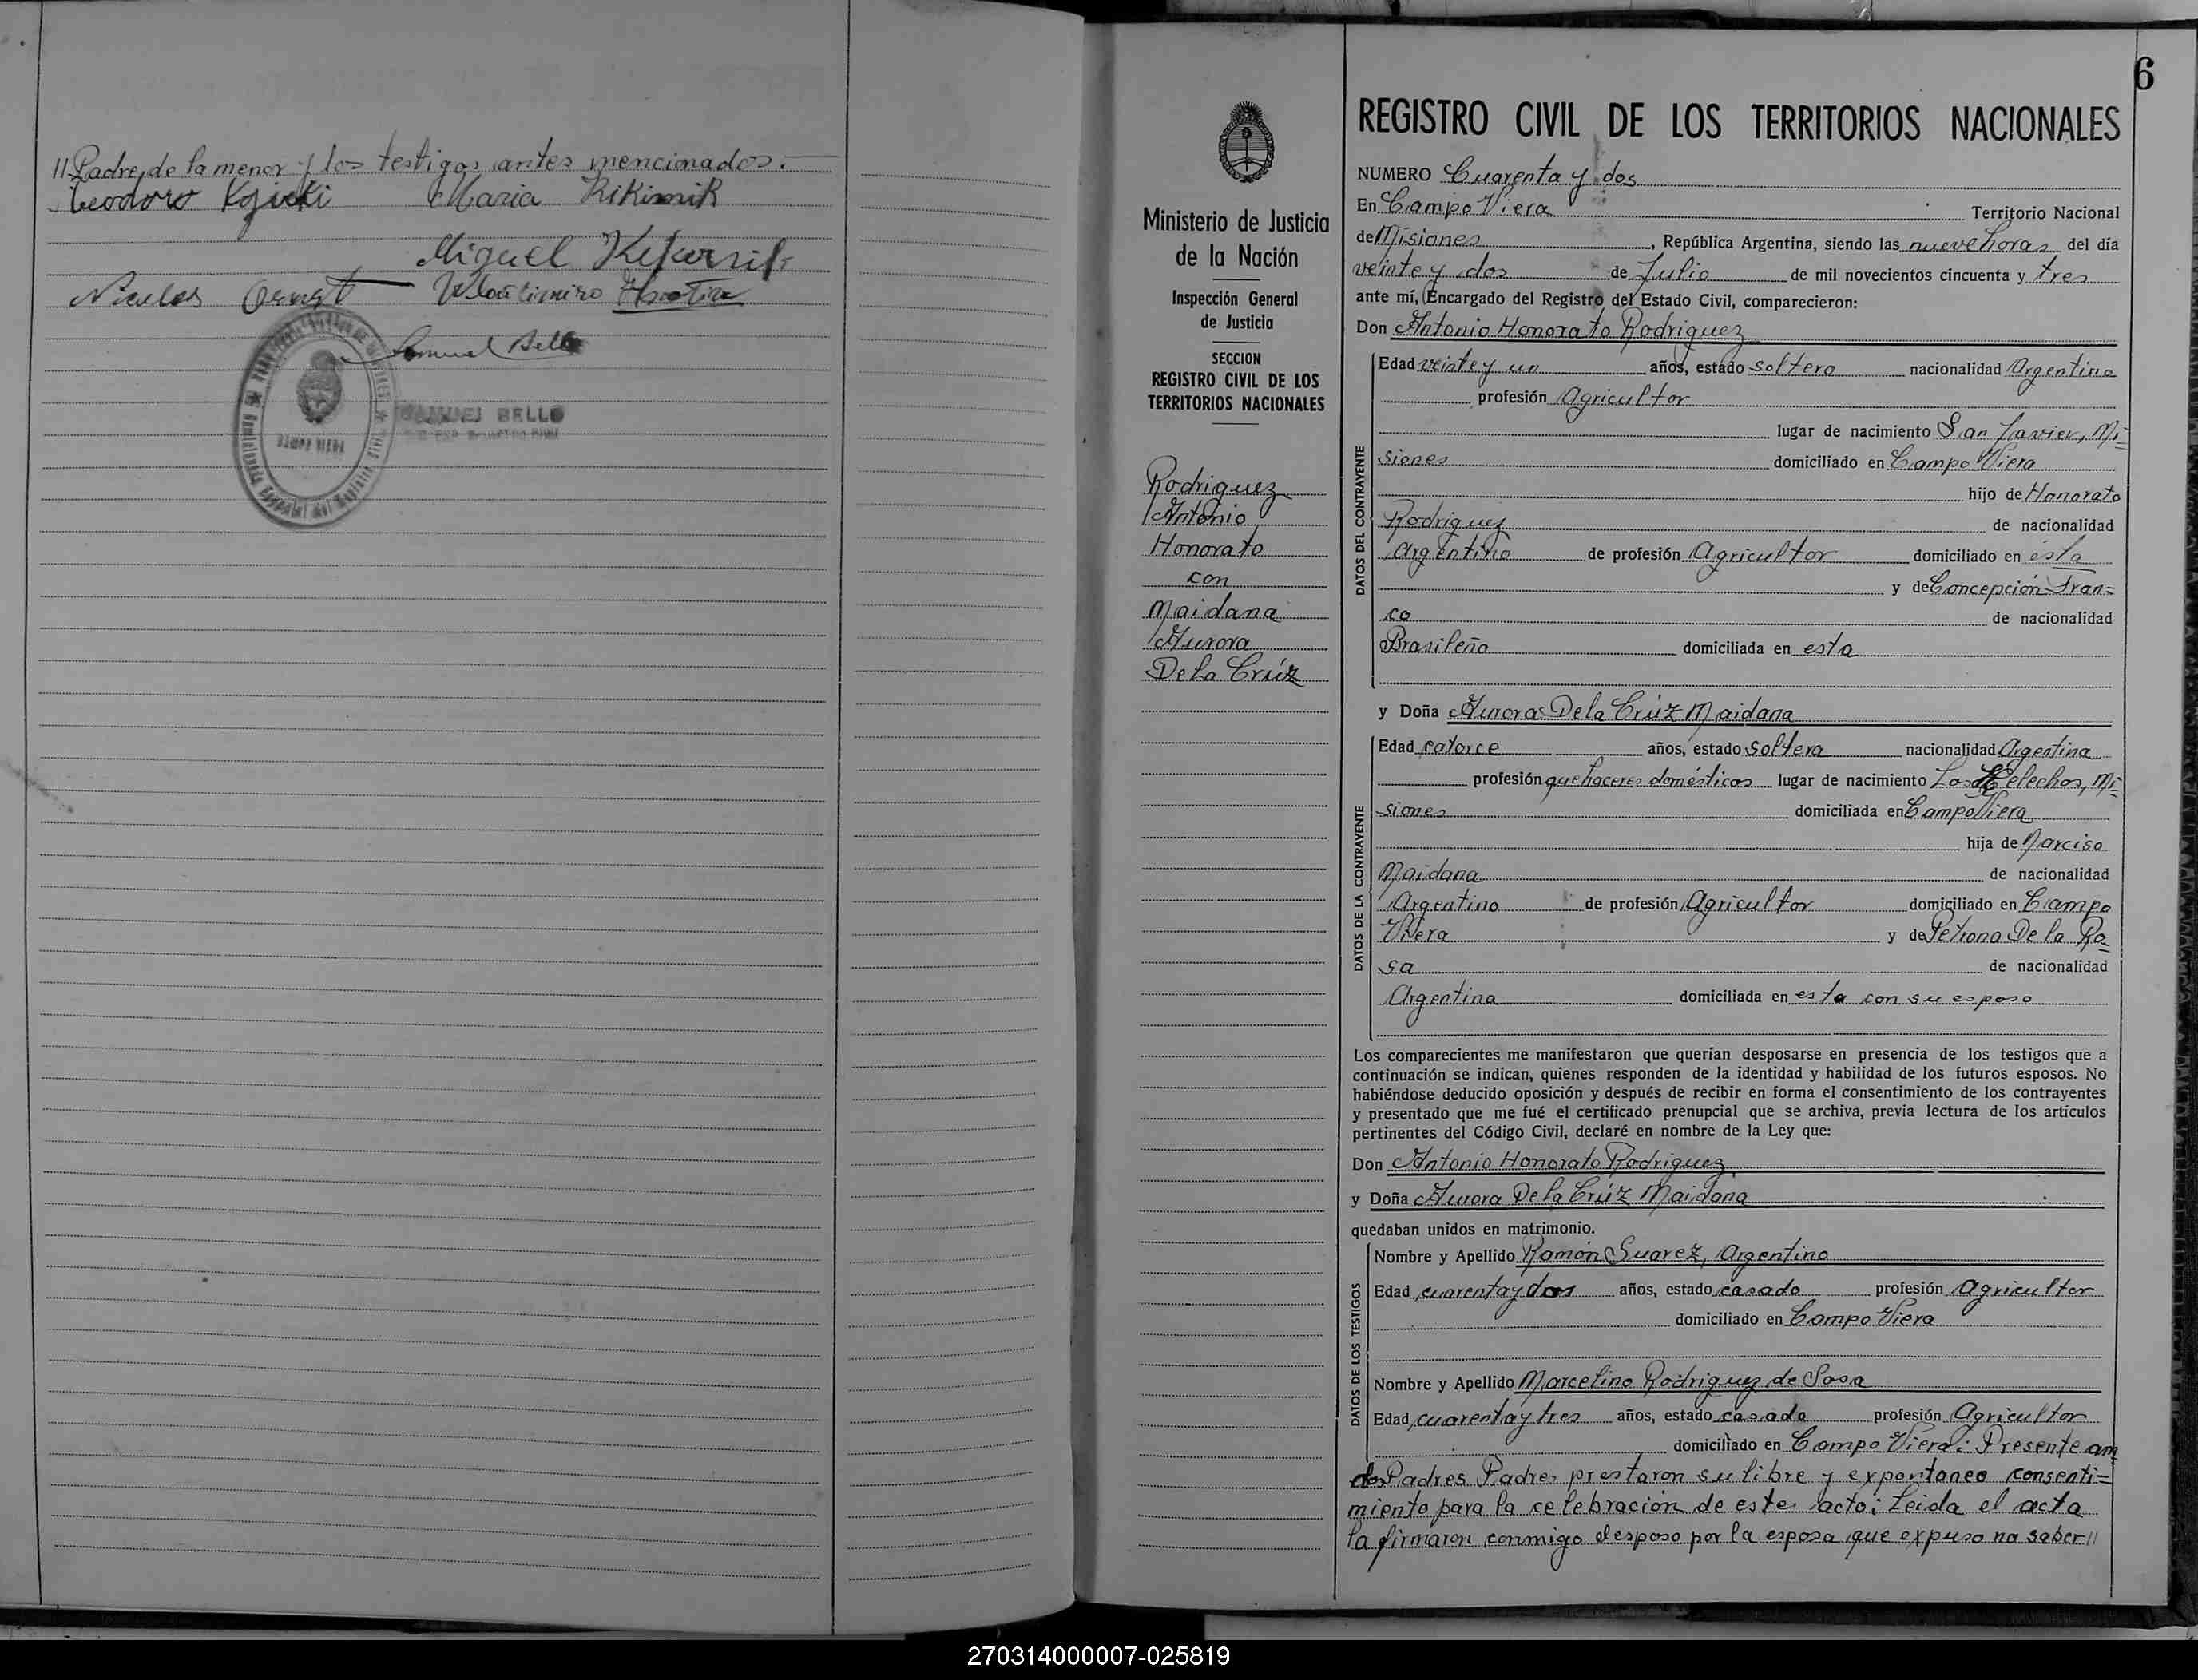 // Padre, de la menor y los testigos antes mencionados.
Teodoro
Maria
Miguel
Nicolas
Samuel Bello
SAMUEL BELLO
6
REGISTRO CIVIL DE LOS TERRITORIOS NACIONALES
NUMERO Cuarenta y dos
En Campo Viera Territorio Nacional
de Misiones, República Argentina, siendo las nueve horas del día
veinte y dos de Julio de mil novecientos cincuenta y tres
ante mí, Encargado del Registro del Estado Civil, comparecieron:
Don Antonio Honorato Rodriguez
DATOS DEL CONTRAYENTE
Edad veinte y un años, estado soltero nacionalidad Argentino
profesión Agricultor
lugar de nacimiento San Javier, Mi=
siones domiciliado en Campo Viera
hijo de Honorato
Rodriguez de nacionalidad
Argentino de profesión Agricultor domiciliado en esta
y de Concepción Fran=
co de nacionalidad
Brasileña domiciliada en esta
y Doña Aurora De la Crúz Maidana
DATOS DE LA CONTRAYENTE
Edad catorce años, estado soltera nacionalidad Argentina
profesión que haceres domésticos lugar de nacimiento Los Helechos, Mi=
siones domiciliada en Campo Viera
hija de Narciso
Maidana de nacionalidad
Argentino de profesión Agricultor domiciliado en Campo
Viera y de Petrona De la Ro=
sa de nacionalidad
Argentina domiciliada en esta con su esposo
Los comparecientes me manifestaron que querían desposarse en presencia de los testigos que a
continuación se indican, quienes responden de la identidad y habilidad de los futuros esposos. No
habiéndose deducido oposición y después de recibir en forma el consentimiento de los contrayentes
y presentado que me fué el certificado prenupcial que se archiva, previa lectura de los artículos
pertinentes del Código Civil, declaré en nombre de la Ley que:
Don Antonio Honorato Rodriguez
y Doña Aurora De la Crúz Maidana
quedaban unidos en matrimonio.
DATOS DE LOS TESTIGOS
Nombre y Apellido Ramón Suarez, Argentino
Edad cuarenta y dos años, estado casado profesión Agricultor
domiciliado en Campo Viera
Nombre y Apellido Marcelino Rodriguez de Sosa
Edad cuarenta y tres años, estado casado profesión Agricultor
domiciliado en Campo Viera: Presente am
dos Padres Padres prestaron su libre y expontaneo consenti=
miento para la celebración de este acto: Leida el acta
la firmaron conmigo el esposo por la esposa que expuso no saber //
Ministerio de Justicia
de la Nación
Inspección General
de Justicia
SECCION
REGISTRO CIVIL DE LOS
TERRITORIOS NACIONALES
Rodriguez
Antonio
Honorato
con
Maidana
Aurora
De la Crúz
270314000007-025819